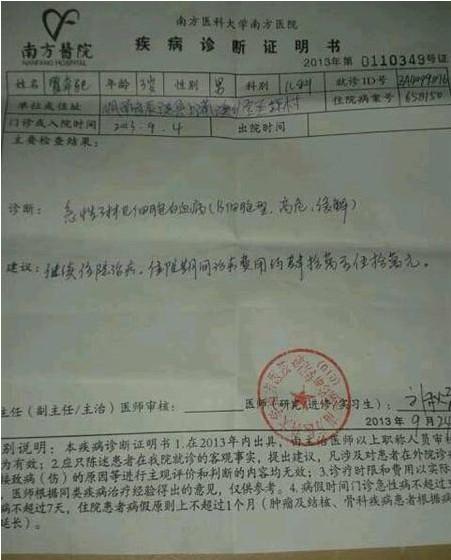 南方醫院
NANFANG HOSPITAL
南方医科大学南方医院
疾病诊断证明书
2013年第0110349号证
姓名 年龄 3岁 性别 男 科别 儿科 就诊ID号
单位或住址 住院病案号 658150
门诊或入院时间 2013.9.4 出院时间
主要检查结果:
诊断: 急性淋巴细胞白血病(B细胞型,高危,缓解)
建议: 继续住院治疗。住院期间治疗费用约肆拾萬至伍拾萬元。
主任(副主任/主治)医师审核: 医师(研究/进修/实习生):
2013年9月24
别说明:本疾病诊断证明书1.在2013年内出具,由主治医师以上职称人员审核
为有效;2.应只陈述患者在我院就诊的客观事实,提出建议,凡涉及对患者在外院诊
接致病(伤)的原因等进行主观评价和判断的内容均无效;3.诊疗时限和费用以实际
医师根据同类疾病治疗经验得出的意见,仅供参考。4.病假时间门诊急性病不超过3
病不超过7天,住院患者病假原则上不超过1个月(肿瘤及结核、骨科疾病患者根据病
延长)。